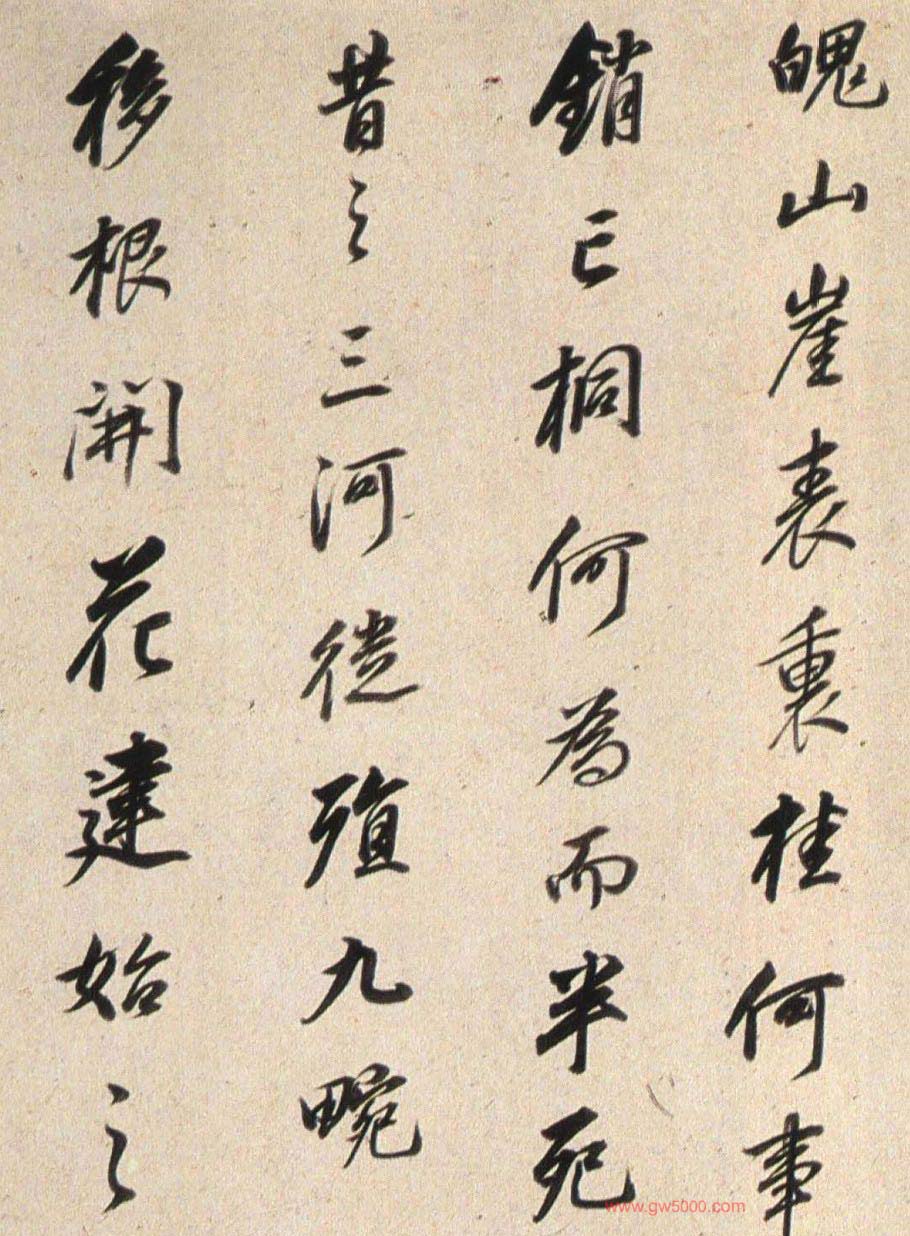 魄山崖表裏桂何事
銷亡桐何為而半死
昔之三河徙殖九畹
移根開花建始之
www.gw5000.com